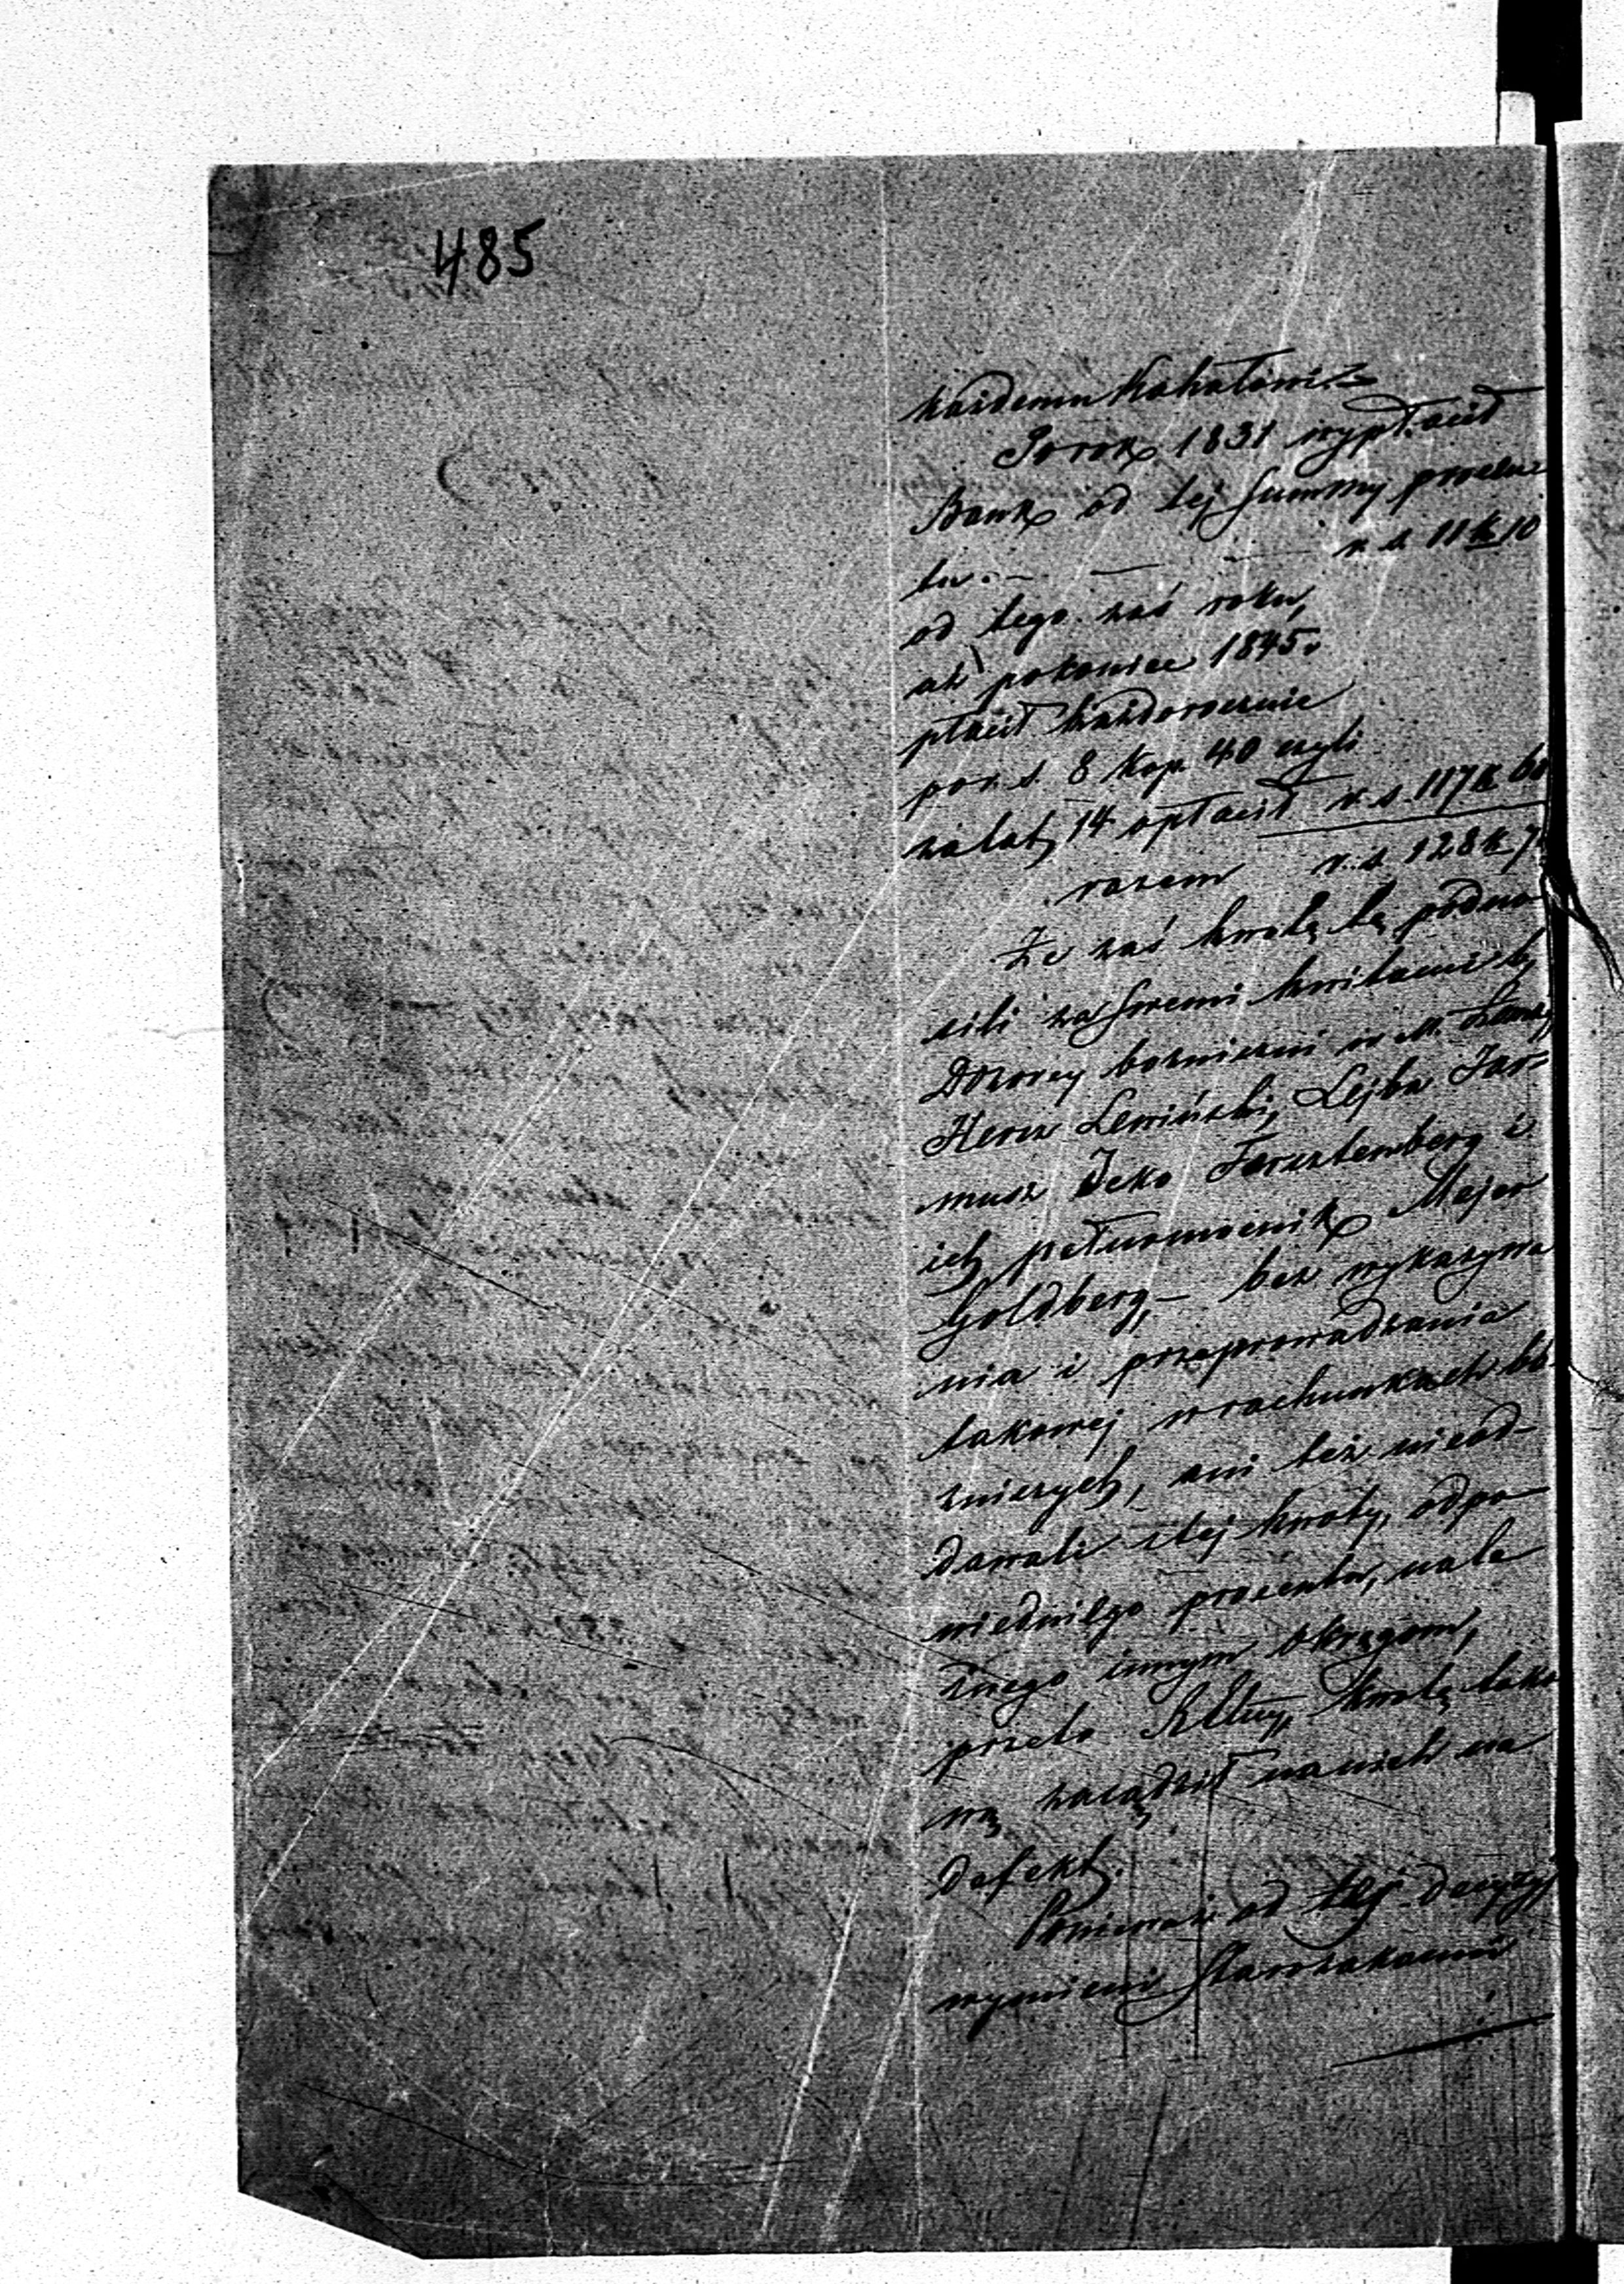 485
każdemu Kahałowi
Po rok 1831 wypłacił
Bank od tej Summy procen
tu. — — — r. s. 11 k 10
od tego zaś roku,
aż pokoniec 1845 r
płacił każdorocznie
po r. s. 8 kop. 40 czyli
zalat 14 opłacił r. s. 117 k 60
razem r. s. 128 k 7
Że zaś kwotę tę podno
sili za swemi kwitami b,
Dozorcy bożniczni w M.
Hersz Lewiński, Lejba Jar=
musz Icko Forsztemberg i
ich pełnomocnik Majer
Goldberg, — bez wykazywa
nia i przeprowadzania
takowej w rachunkach bó
żniczych, ani też nieod-
dawali z tej kwoty, odpo
wiedniego procentu, nale
żnego innym Okręgom,
przeto kwotę tako
wą zasądził na nich na
defekt.
Ponieważ od tej decyzyi
wymienieni Starozakonni